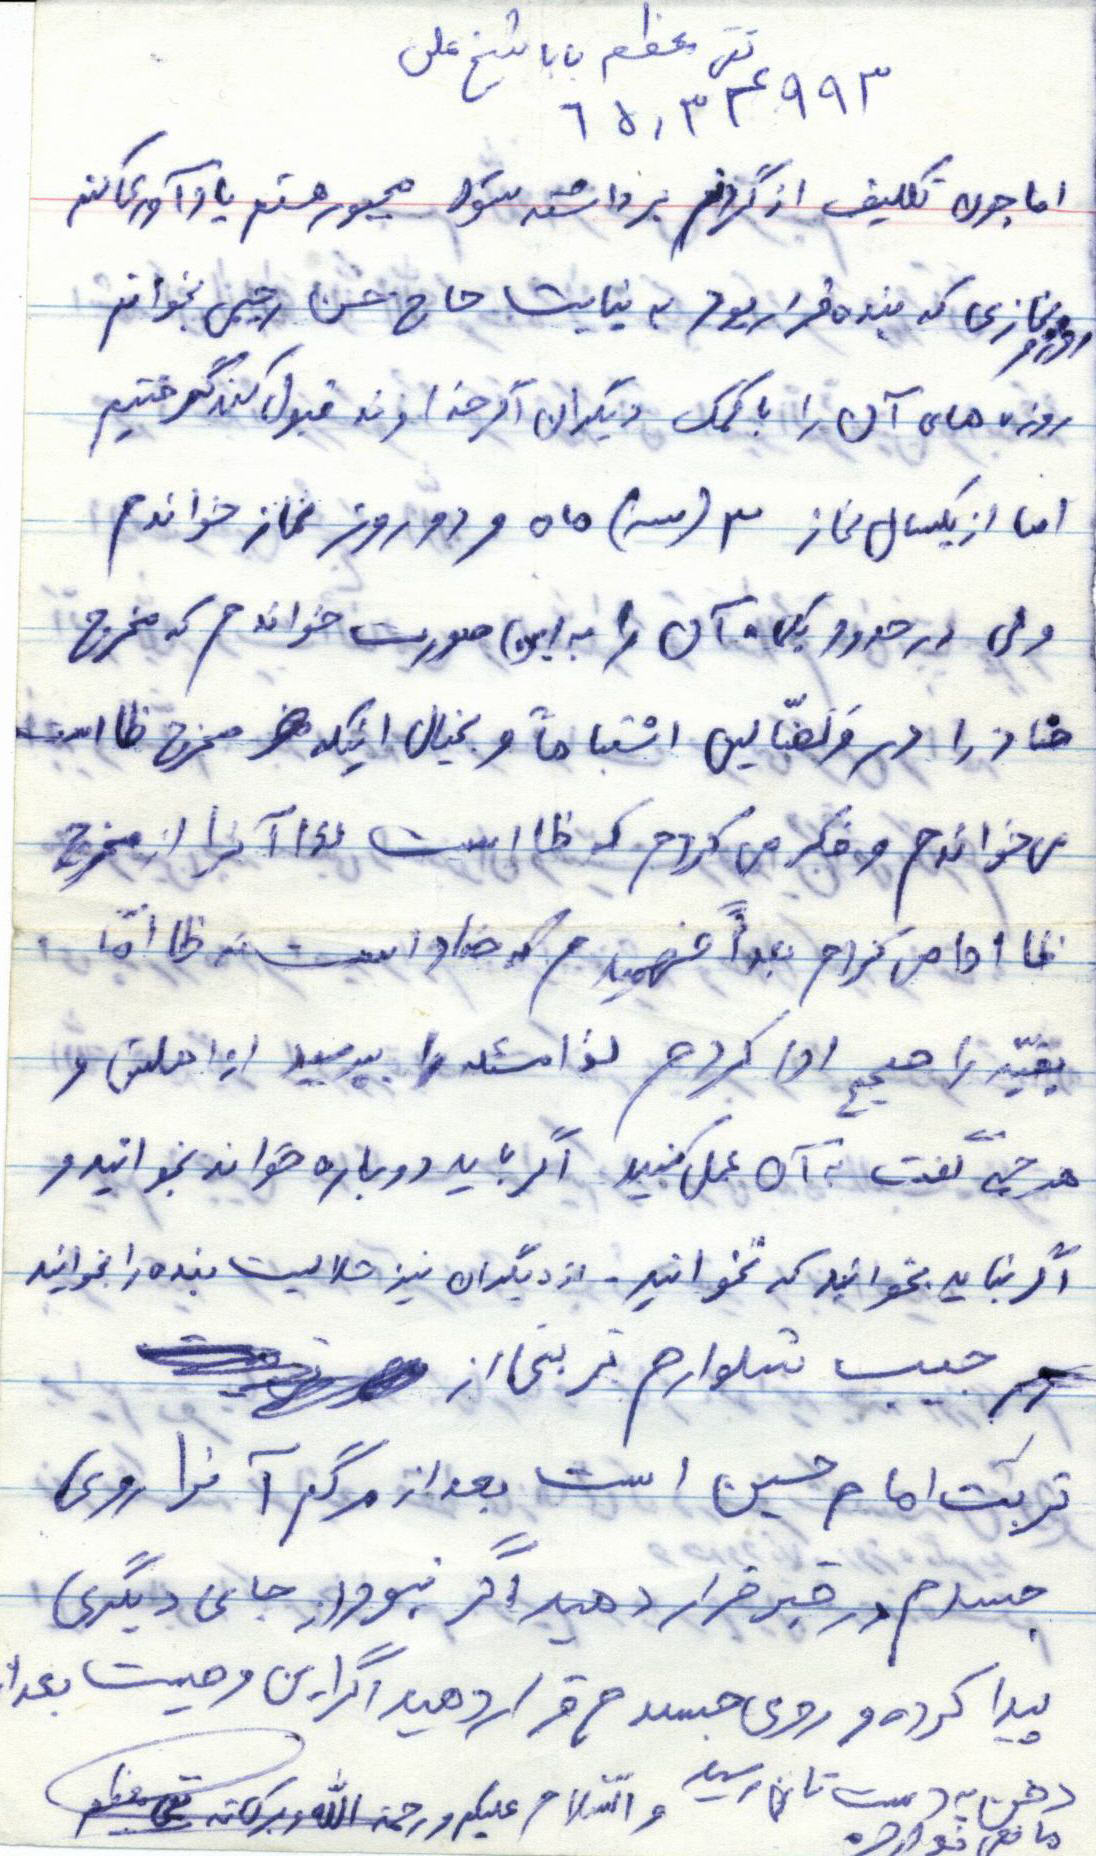 تقی معظم باباشیخ علی
۶۵٫۳۳۴۹۹۳
اما چون تکلیف از گردنم برداشته شود مجبور هستم یادآوری کنم
نمازی که بنده قرار بود به نیابت حاج حسن رجبی بخوانم
روزه های آن را با کمک دیگران اگر خداوند قبول کند گرفتیم
اما از یکسال نماز ۳ (سه) ماه و دو روز نماز خواندم
ولی در حدود یکماه آن را به این صورت خواندم که مخرج
ضاد را در وَلَضّالین اشتباهاً و بخیال اینکه مخرج ظا است
می خواندم و فکر می کردم که ظا است لذا آنرا از مخرج
ظا ادا می کردم بعداً فهمیدم که ضاد است نه ظا امّا
بقیّه را صحیح ادا کردم لذا مسئله را بپرسید از اهلش و
هر چه گفت به آن عمل کنید اگر باید دوباره خواند بخوانید و
اگر نباید بخوانید که نخوانید - از دیگران نیز حلالیت بنده را بخواهید
در جیب شلوارم تربتی از
تربت امام حسین است بعد از مرگم آنرا روی
جسدم در قبر قرار دهید اگر نبود از جای دیگری
پیدا کرده و روی جسدم قرار دهید اگر این وصیت بعد از
دفن به دست تان رسید والسّلام علیکم و رحمة الله و برکاته تقی معظم
مانعی ندارد